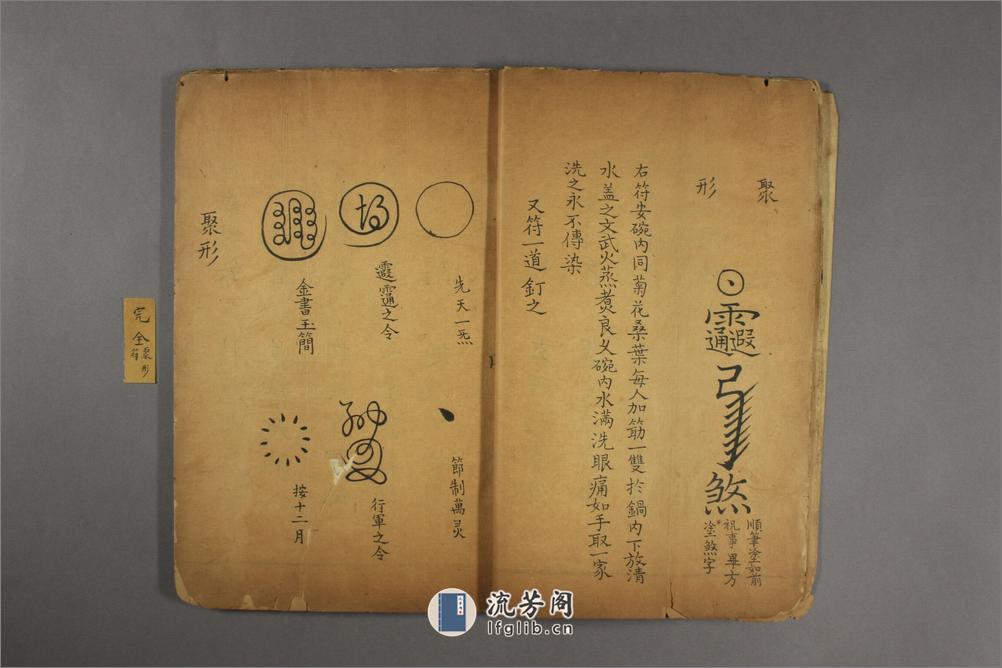 聚
形
靈遐通
煞
順筆塗如前
祝事畢方
塗煞字
右符安碗內同菊花桑葉每人加筯一雙於鍋內下放清
水盖之文武火蒸煮良乆碗內水滿洗眼痛如手取一家
洗之永不傳染
又符一道釘之
先天一炁
節制萬灵
靈通之令
行軍之令
金書玉簡
按十二月
聚形
完全
聚形符
流芳阁
lfglib.cn